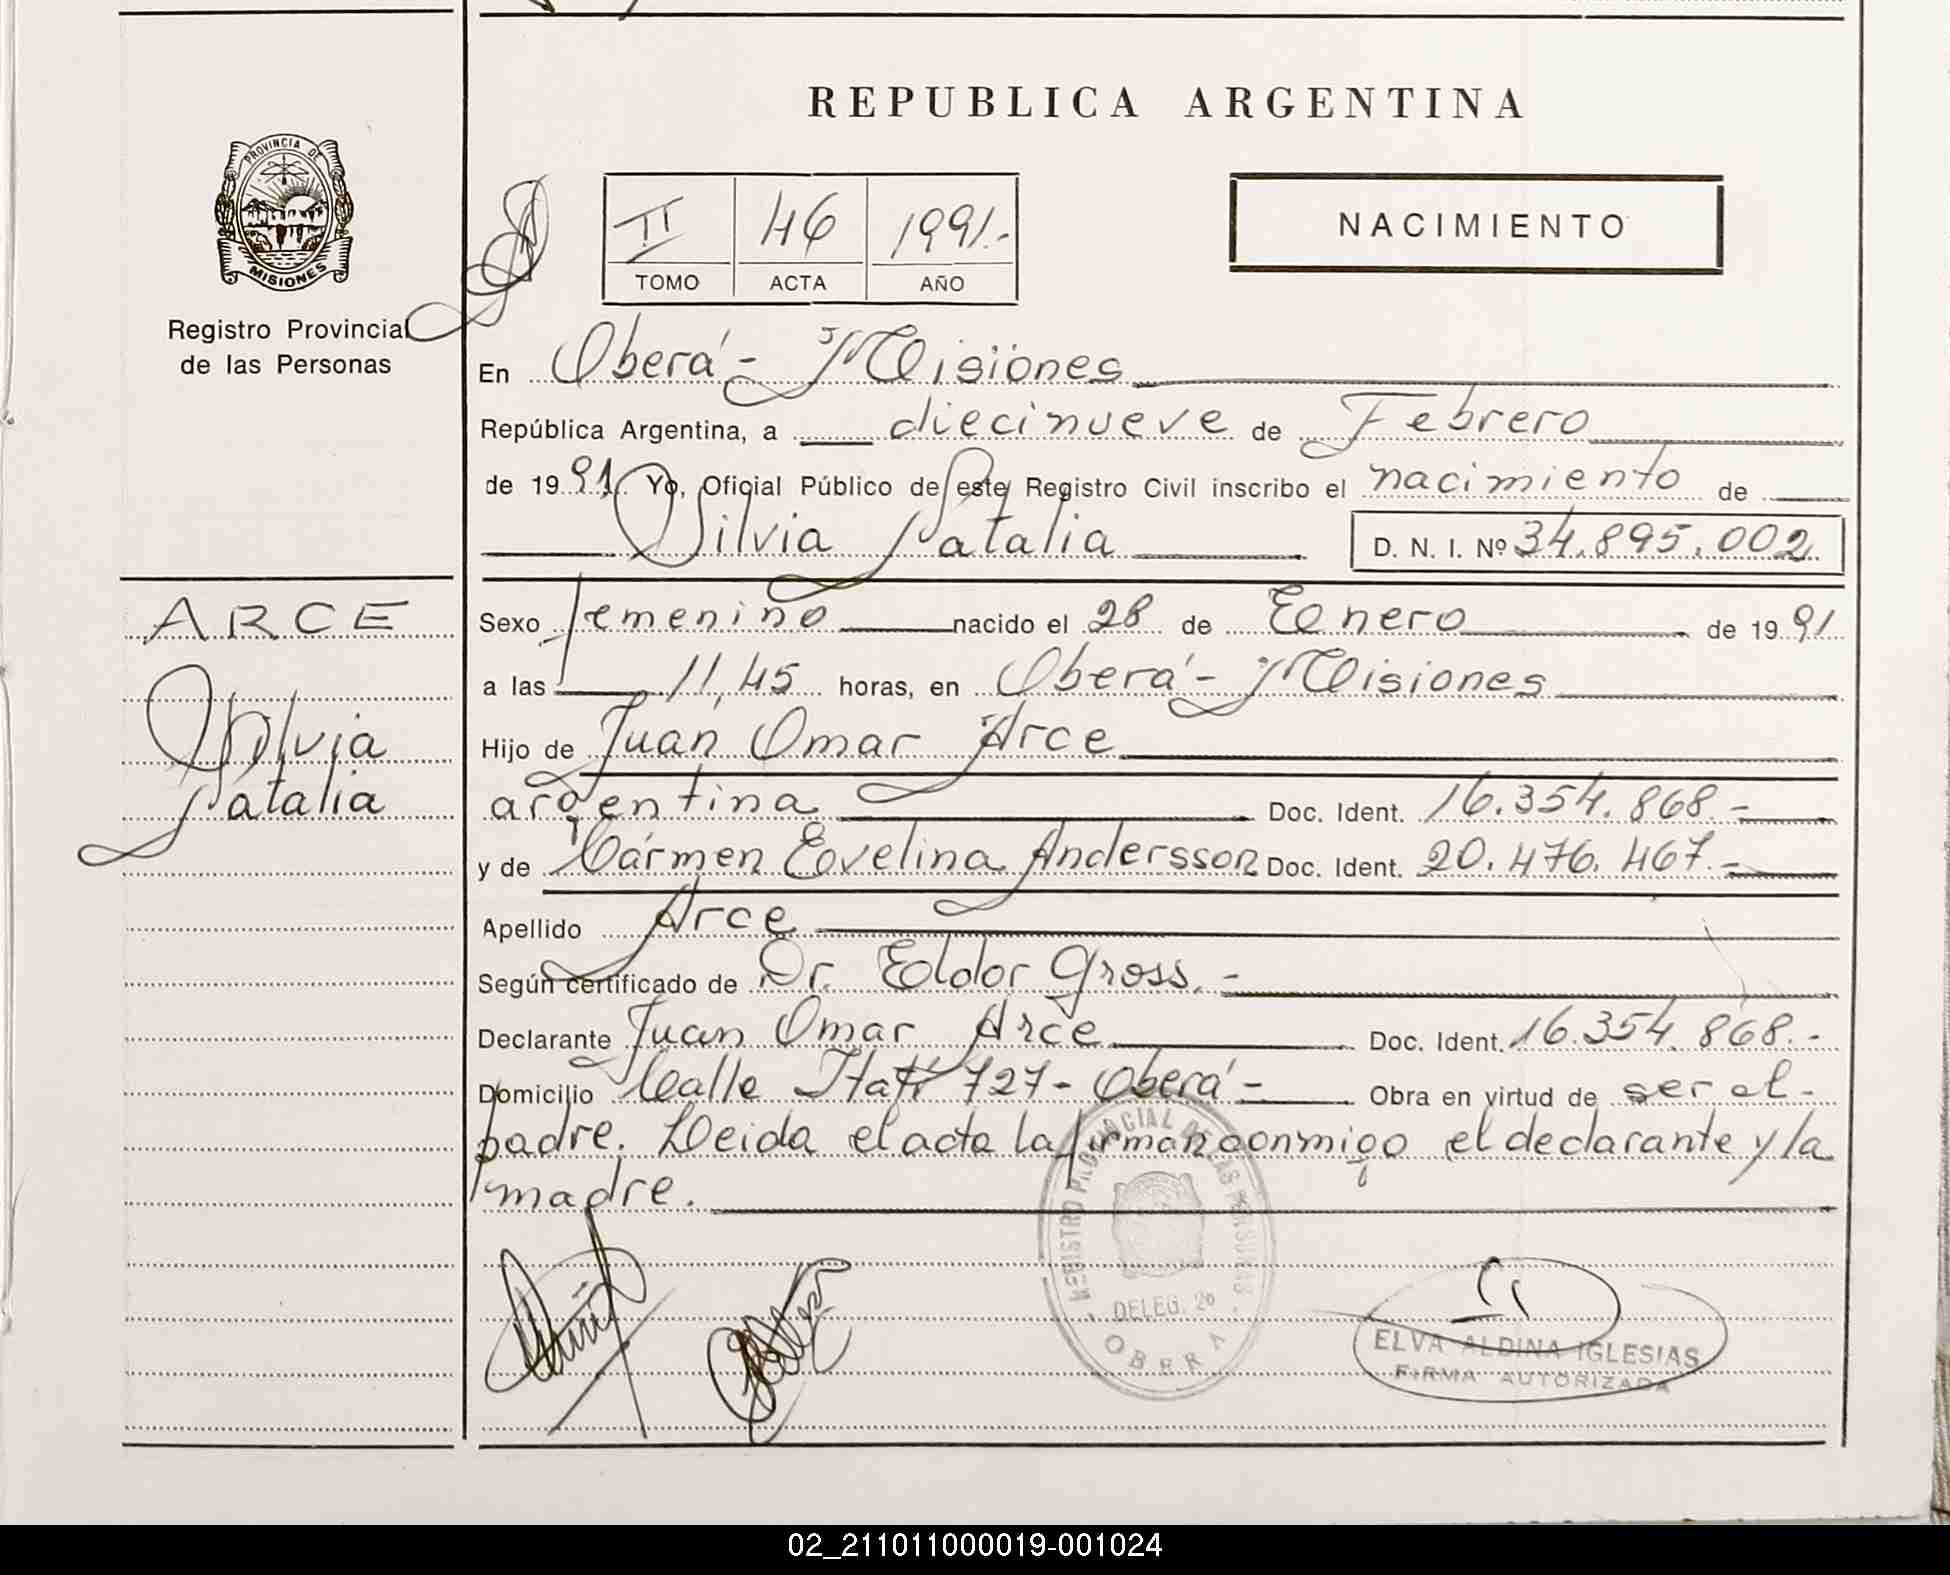 REPUBLICA ARGENTINA
PROVINCIA DE
MISIONES
Registro Provincial
de las Personas
II 46 1991.-
TOMO ACTA AÑO
NACIMIENTO
En Oberá - Misiones
República Argentina, a diecinueve de Febrero
de 1991 Yo, Oficial Público de este Registro Civil inscribo el nacimiento de
Silvia Natalia D. N. I. Nº 34.895.002
ARCE
Silvia
Natalia
Sexo femenino nacido el 28 de Enero de 1991
a las 11,45 horas, en Oberá - Misiones
Hijo de Juan Omar Arce
argentina Doc. Ident. 16.354.868.-
y de Cármen Evelina Andersson Doc. Ident. 20.476.467.-
Apellido Arce
Según certificado de Dr. Eldor Gross.-
Declarante Juan Omar Arce Doc. Ident. 16.354.868.-
Domicilio Calle Itatí 727 - Oberá - Obra en virtud de ser el
padre. Leida el acta la firman conmigo el declarante y la
madre.
REGISTRO PROVINCIAL DE LAS PERSONAS
DELEG. 2º
OBERA
ELVA ALDINA IGLESIAS
FIRMA AUTORIZADA
02_211011000019-001024